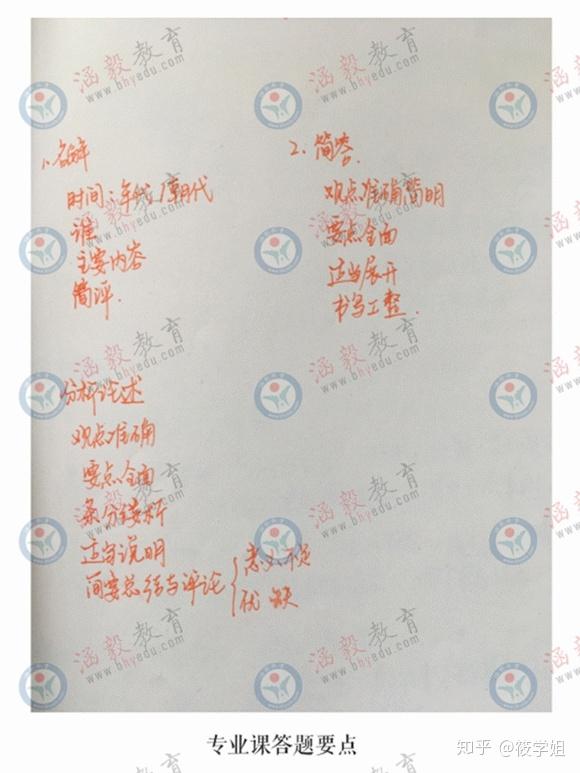 1、名解
时间:年代/朝代
谁
主要内容
简评.
2、简答.
观点准确简明
要点全面
适当展开
书写工整.
分析论述
观点准确
要点全面
条分缕析
适当说明
简要总结与评论
意义不足
优 缺
涵毅教育
www.bhyedu.com
专业课答题要点
知乎 @筱学姐